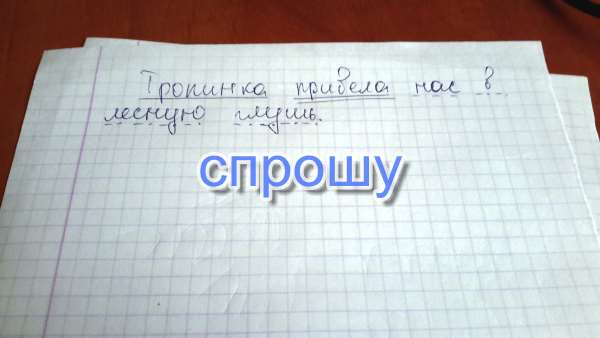 Тропинка привела нас в
лесную глушь.
спрошу